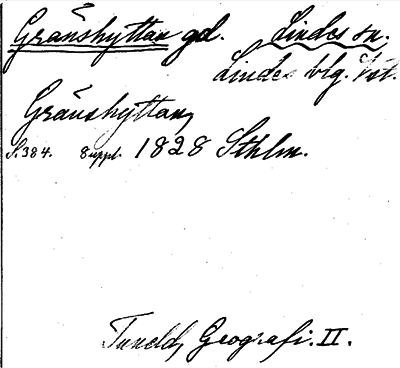 Gränshyttan gd. Lindes sn.
Lindes blg. Vstm.
Gränshyttan,
S. 384. Suppl. 1828 Sthlm.
Tuneld, Geografi. II.